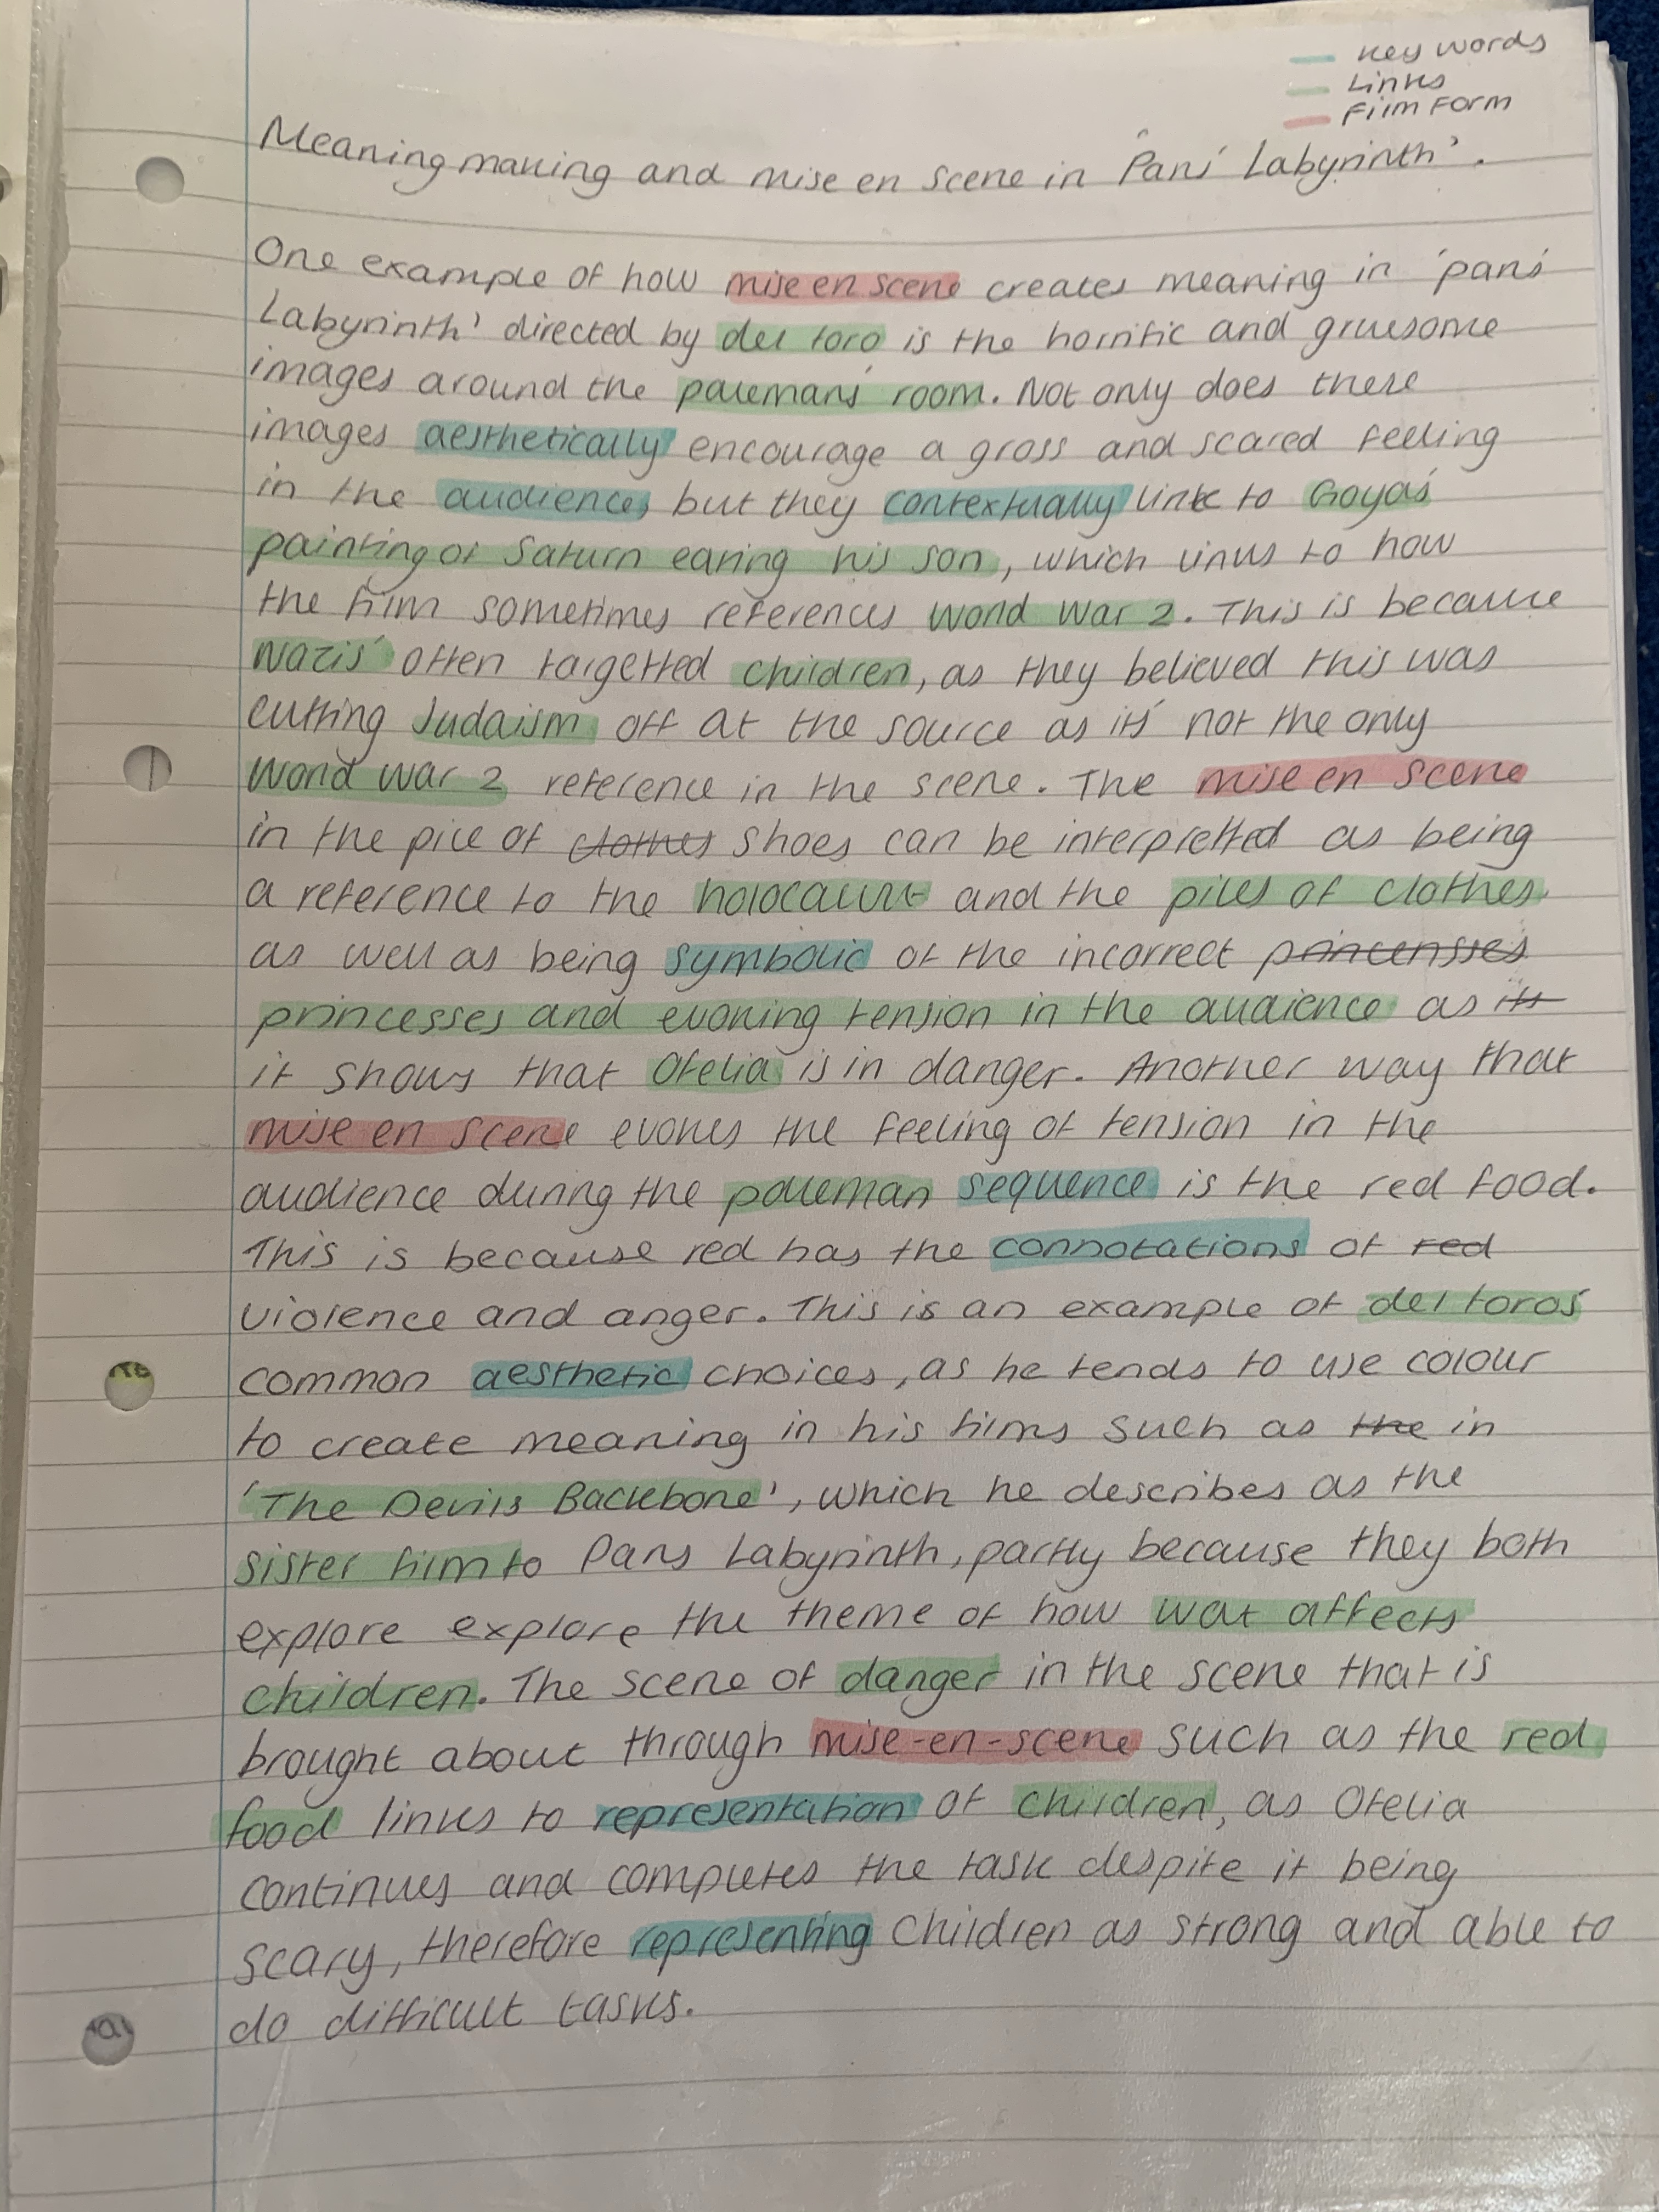 Key words
Links
Film Form
Meaning making and mise en scene in 'Pans' Labyrinth'.
One example of how mise en scene creates meaning in 'pans'
Labyrinth' directed by del toro is the horrific and gruesome
images around the paleman's room. Not only does these
images aesthetically encourage a gross and scared feeling
in the audience, but they contextually link to Goya's
painting of Saturn eating his son, which links to how
the film sometimes references World War 2. This is because
Nazis' often targetted children, as they believed this was
cutting Judaism off at the source as it's not the only
World War 2 reference in the scene. The mise en scene
in the pile of clothes shoes can be interpretted as being
a reference to the holocaust and the piles of clothes
as well as being symbolic of the incorrect princensses
princesses and evoking tension in the audience as its
it shows that Ofelia is in danger. Another way that
mise en scene evokes the feeling of tension in the
audience during the paleman sequence is the red food.
This is because red has the connotations of red
violence and anger. This is an example of del toros'
common aesthetic choices, as he tends to use colour
to create meaning in his films such as the in
'The Devils Backbone', which he describes as the
sister film to Pans Labyrinth, partly because they both
explore explore the theme of how war affects
children. The scene of danger in the scene that is
brought about through mise-en-scene such as the red
food links to representation of children, as Ofelia
continues and completes the task despite it being
scary, therefore representing children as strong and able to
do difficult tasks.